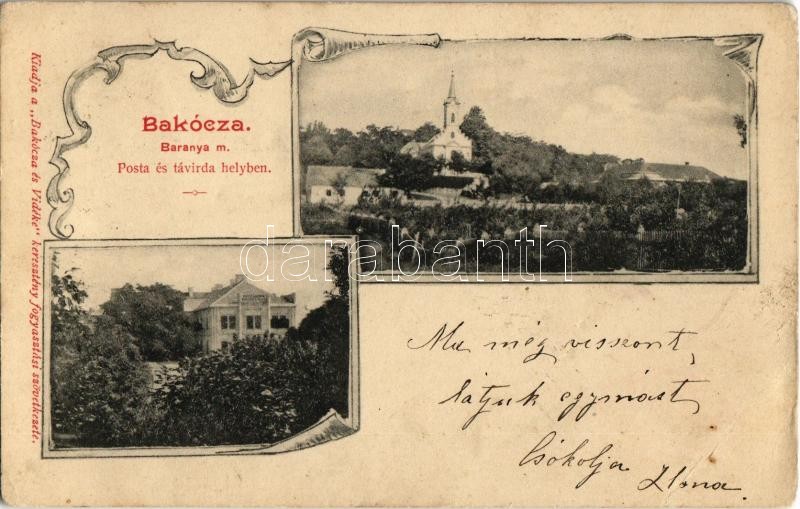 Bakócza.
Baranya m.
Posta és távirda helyben.
Kiadja a „Bakócza és Vidéke" keresztény fogyasztási szövetkezete.
darabanth
Ma még viszont
látjuk egymást
Csókolja
Ilona